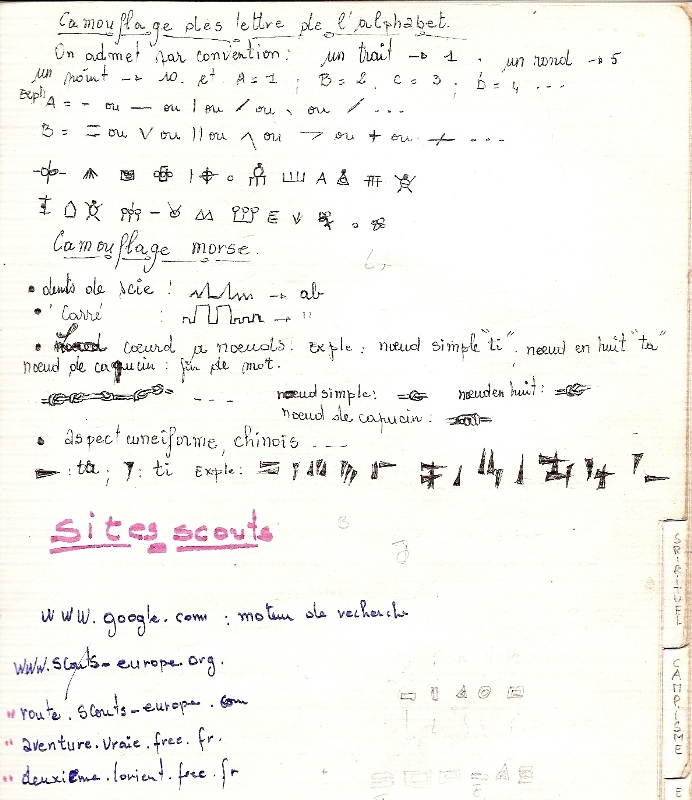 Camouflage des lettre de l'alphabet.
On admet par convention: un trait → 1 . un rond → 5
un point → 10. et A = 1 ; B = 2, C = 3 ; D = 4 ...
Exple A = - ou — ou | ou / ou \ ou / ...
B = = ou V ou || ou ^ ou ¬ ou + ou ...
Camouflage morse.
• dents de scie : → ab
• Carré : → "
• cœurd à nœuds. Exple : nœud simple "ti", nœud en huit "ta"
nœud de capucin : fin de mot.
... nœud simple: nœud en huit:
nœud de capucin :
• aspect cuneiforme, chinois ...
: ta ; : ti Exple :
Sites scouts
www.google.com : moteur de recherche
www.scouts-europe.org.
" route.scouts-europe.com
" aventure.vraie.free.fr.
" deuxième.lorient.free.fr
SPIRITUEL
CAMPISME
E